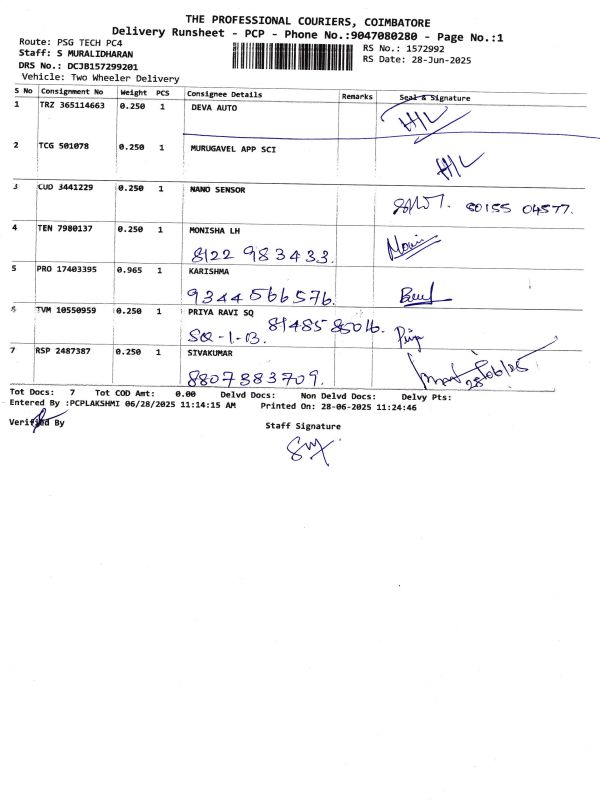 THE PROFESSIONAL COURIERS, COIMBATORE
Delivery Runsheet - PCP - Phone No.:9047080280 - Page No.:1
Route: PSG TECH PC4
RS No.: 1572992
Staff: S MURALIDHARAN
RS Date: 28-Jun-2025
DRS No.: DCJB157299201
Vehicle: Two Wheeler Delivery
S No Consignment No Weight PCS Consignee Details Remarks Seal & Signature
1 TRZ 365114663 0.250 1 DEVA AUTO H/L
2 TCG 501078 0.250 1 MURUGAVEL APP SCI H/L
3 CUD 3441229 0.250 1 NANO SENSOR
80155 04577.
4 TEN 7980137 0.250 1 MONISHA LH
8122 983433.
5 PRO 17403395 0.965 1 KARISHMA
9344566576.
6 TVM 10550959 0.250 1 PRIYA RAVI SQ
81485 85016.
SQ-1-03. Priya
7 RSP 2487387 0.250 1 SIVAKUMAR
8807383709. 28/06/25
Tot Docs: 7 Tot COD Amt: 0.00 Delvd Docs: Non Delvd Docs: Delvy Pts:
Entered By :PCPLAKSHMI 06/28/2025 11:14:15 AM Printed On: 28-06-2025 11:24:46
Verified By
Staff Signature